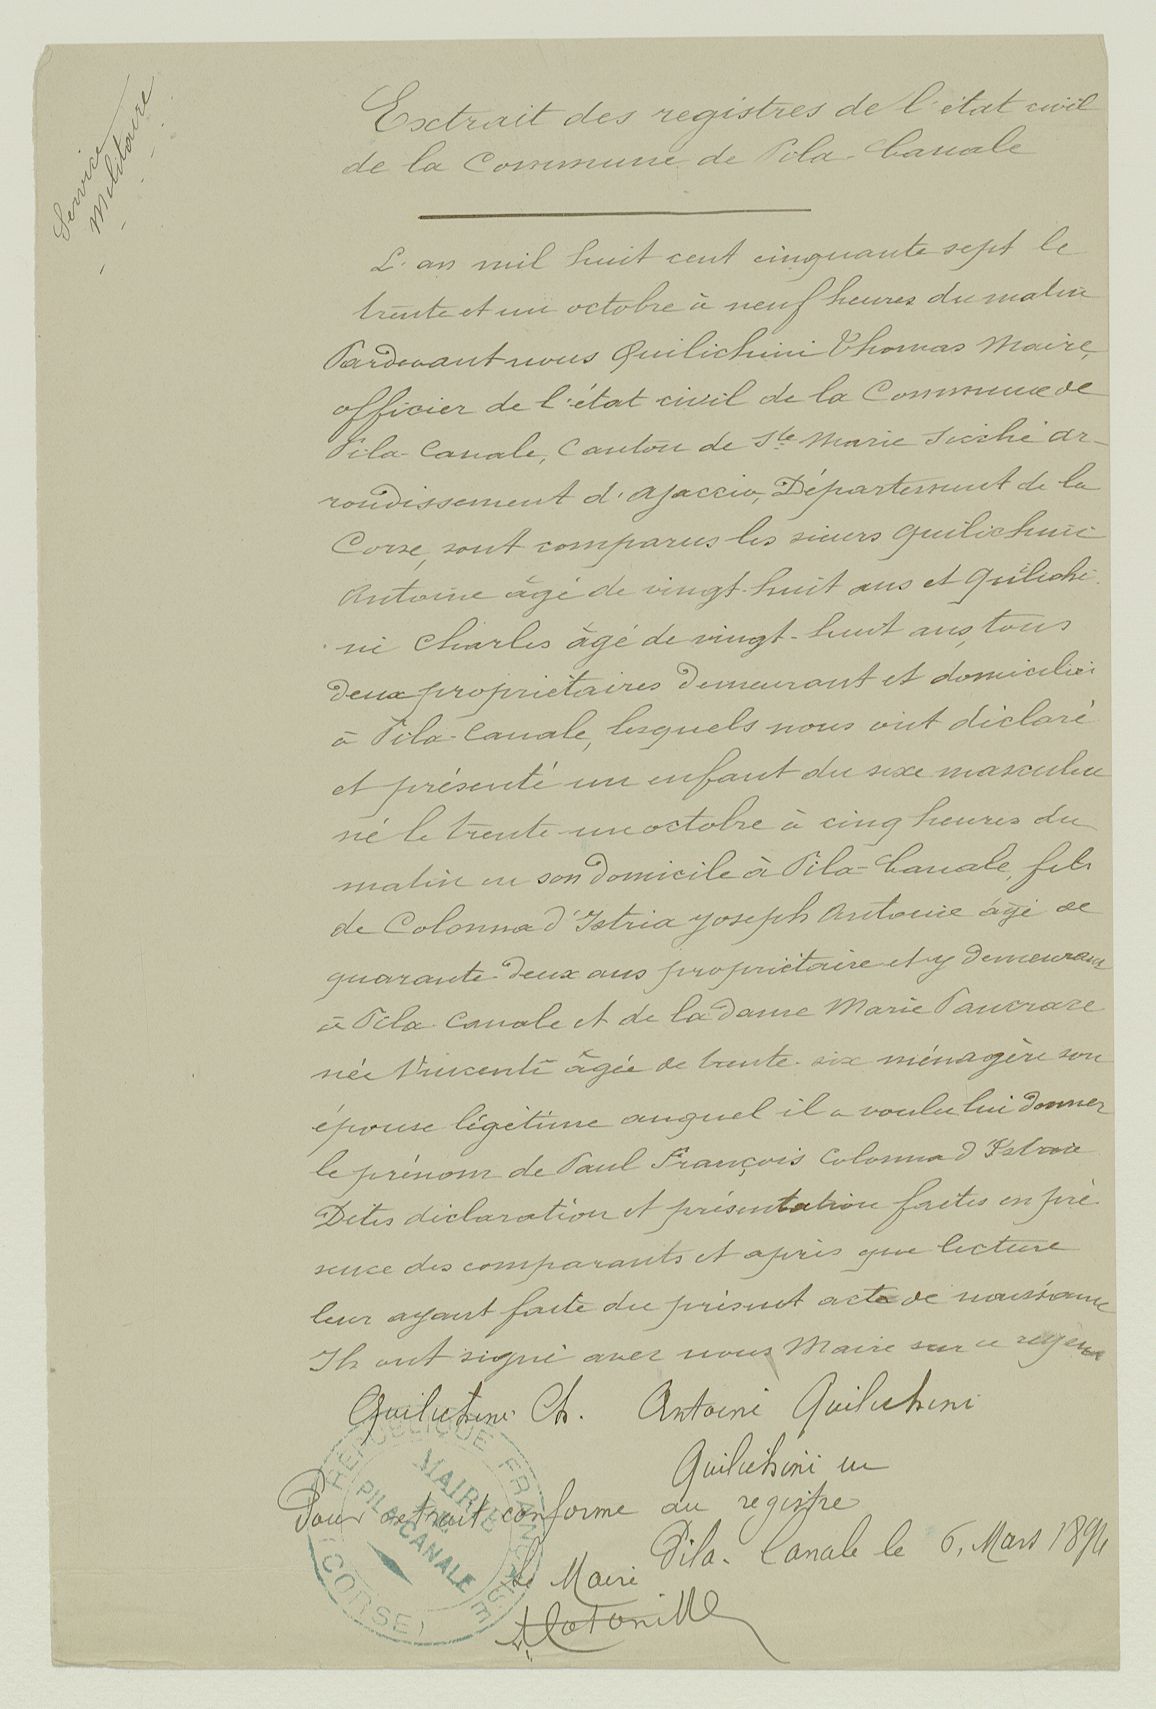 Service
Militaire
Extrait des registres de l'état civil
de la Commune de Pila-Canale
L'an mil huit cent cinquante sept le
trente et un octobre à neuf heures du matin
Pardevant nous Quilichini Thomas Maire,
officier de l'état civil de la Commune de
Pila-Canale, Canton de Ste Marie Siché ar-
rondissement d'Ajaccio, Département de la
Corse, sont comparus les sieurs Quilichini
Antoine âgé de vingt-huit ans et Quilichi-
ni Charles âgé de vingt-huit ans, tous
deux propriétaires demeurant et domiciliés
à Pila-Canale, lesquels nous ont déclaré
et présenté un enfant du sexe masculin
né le trente un octobre à cinq heures du
matin en son domicile à Pila-Canale, fils
de Colonna d'Istria Joseph Antoine âgé de
quarante-deux ans propriétaire et y demeurant
à Pila Canale et de la dame Marie Pancrace
née Vincenti âgée de trente-six ménagère son
épouse légitime auquel il a voulu lui donner
le prénom de Paul François Colonna d'Istria
Dites déclaration et présentation faites en pré
sence des comparants et après que lecture
leur ayant faite du présent acte de naissance
Ils ont signé avec nous Maire sur ce
Quilichini Ch. Antoine Quilichini
Quilichini
Pour extrait conforme au registre
Pila-Canale le 6, Mars 1894
Le Maire
RÉPUBLIQUE FRANÇAISE
MAIRIE
DE
PILA-CANALE
(CORSE)